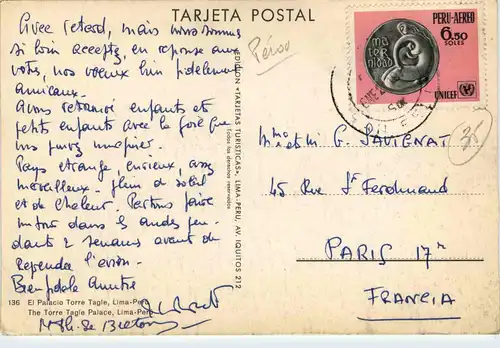 TARJETA POSTAL
Avec retard, mais nous sommes
si loin acceptez, en réponse aux
votre, nos voeux bien fidèlement
amicaux.
Avons retrouvé enfants et
petits enfants avec la joie que
vous pouvez imaginer.
Pays étrange, curieux, assez
merveilleux. plein de soleil
et de chaleur. Partons faire
un tour dans les andes pen-
dant 2 semaines avant de
reprendre l'avion.
Bien fidèle amitié
M. Th. de
136 El Palacio Torre Tagle, Lima-Perú
The Torre Tagle Palace, Lima-Peru
EDICION «TARJETAS TURISTICAS», LIMA PERU, AV. IQUITOS 212
Todos los derechos reservados
Pérou
PERU-AEREO
6.50
SOLES
maternidad
UNICEF
35
Mme et Mr G. SAVIGNAT
45 Rue St Ferdinand
PARIS 17e
FRANCIA